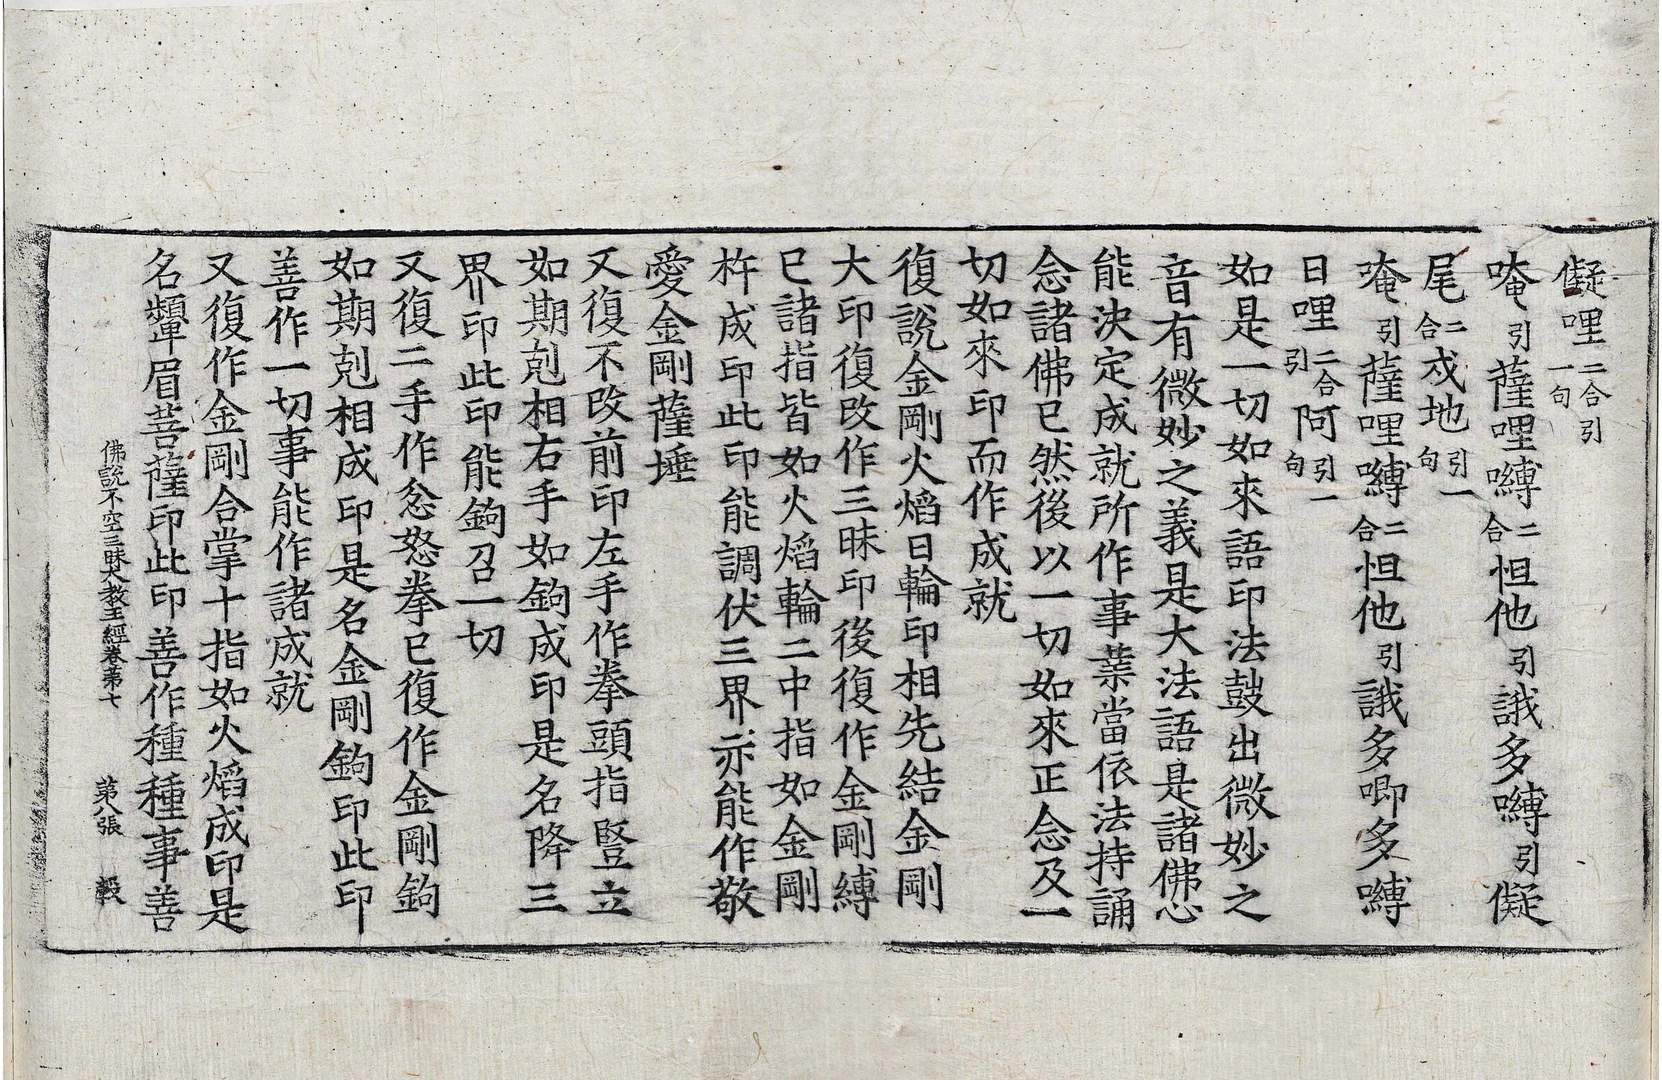 儗哩二合引一句
唵引薩哩嚩二合怛他引誐多嚩引儗
尾二合戍地引一句
唵引薩哩嚩二合怛他引誐多唧多嚩
日哩二合引阿引一句
如是一切如來語印法鼓出微妙之
音有微妙之義是大法語是諸佛心
能決定成就所作事業當依法持誦
念諸佛已然後以一切如來正念及一
切如來印而作成就
復說金剛火焰日輪印相先結金剛
大印復改作三昧印後復作金剛縛
已諸指皆如火焰輪二中指如金剛
杵成印此印能調伏三界亦能作敬
愛金剛薩埵
又復不改前印左手作拳頭指豎立
如期剋相右手如鉤成印是名降三
界印此印能鉤召一切
又復二手作忿怒拳已復作金剛鉤
如期剋相成印是名金剛鉤印此印
善作一切事能作諸成就
又復作金剛合掌十指如火焰成印是
名顰眉菩薩印此印善作種種事善
佛說不空三昧大教王經卷第七 第八張 縠